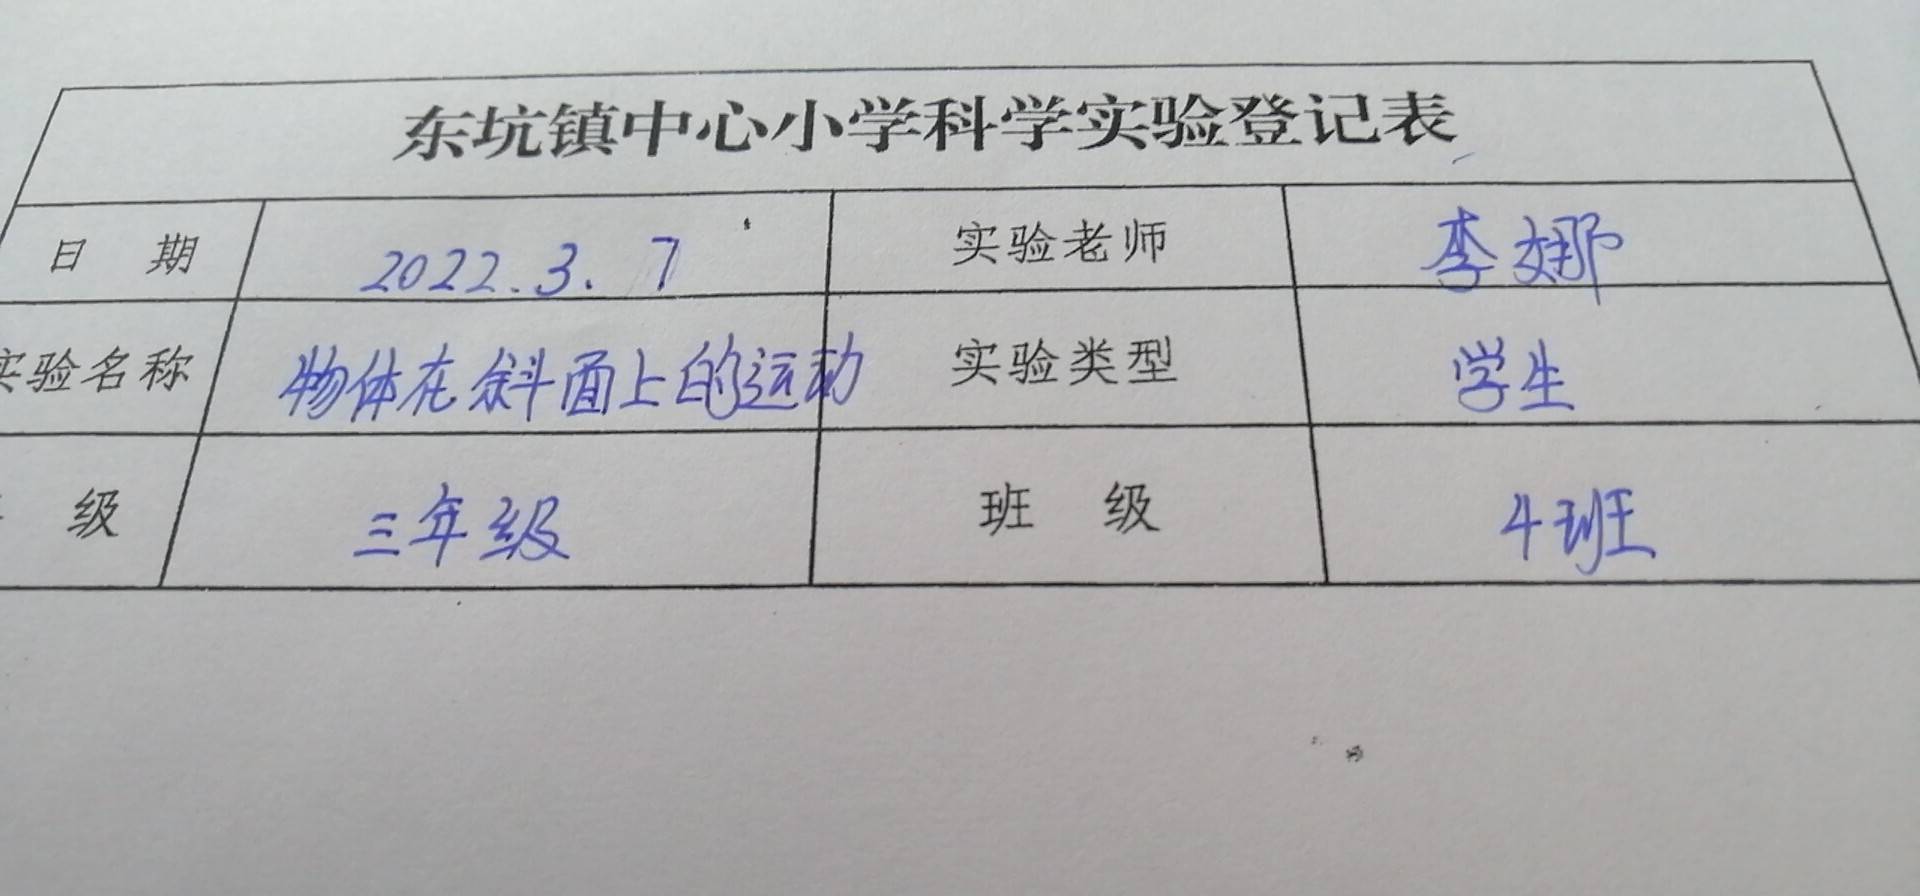 东坑镇中心小学科学实验登记表
日 期 2022.3.7 实验老师 李娜
实验名称 物体在斜面上的运动 实验类型 学生
级 三年级 班 级 4班